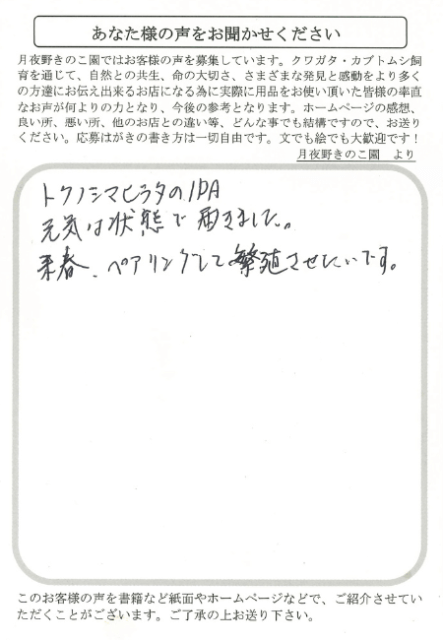 あなた様の声をお聞かせください
月夜野きのこ園ではお客様の声を募集しています。クワガタ・カブトムシ飼
育を通じて、自然との共生、命の大切さ、さまざまな発見と感動をより多く
の方達にお伝え出来るお店になる為に実際に用品をお使い頂いた皆様の率直
なお声が何よりの力となり、今後の参考となります。ホームページの感想、
良い所、悪い所、他のお店との違い等、どんな事でも結構ですので、お送り
ください。応募はがきの書き方は一切自由です。文でも絵でも大歓迎です！
月夜野きのこ園　より
トクノシマヒラタの1PA
元気な状態で届きました。
来春、ペアリングして繁殖させたいです。
このお客様の声を書籍など紙面やホームページなどで、ご紹介させてい
ただくことがございます。ご了承の上お送り下さい。